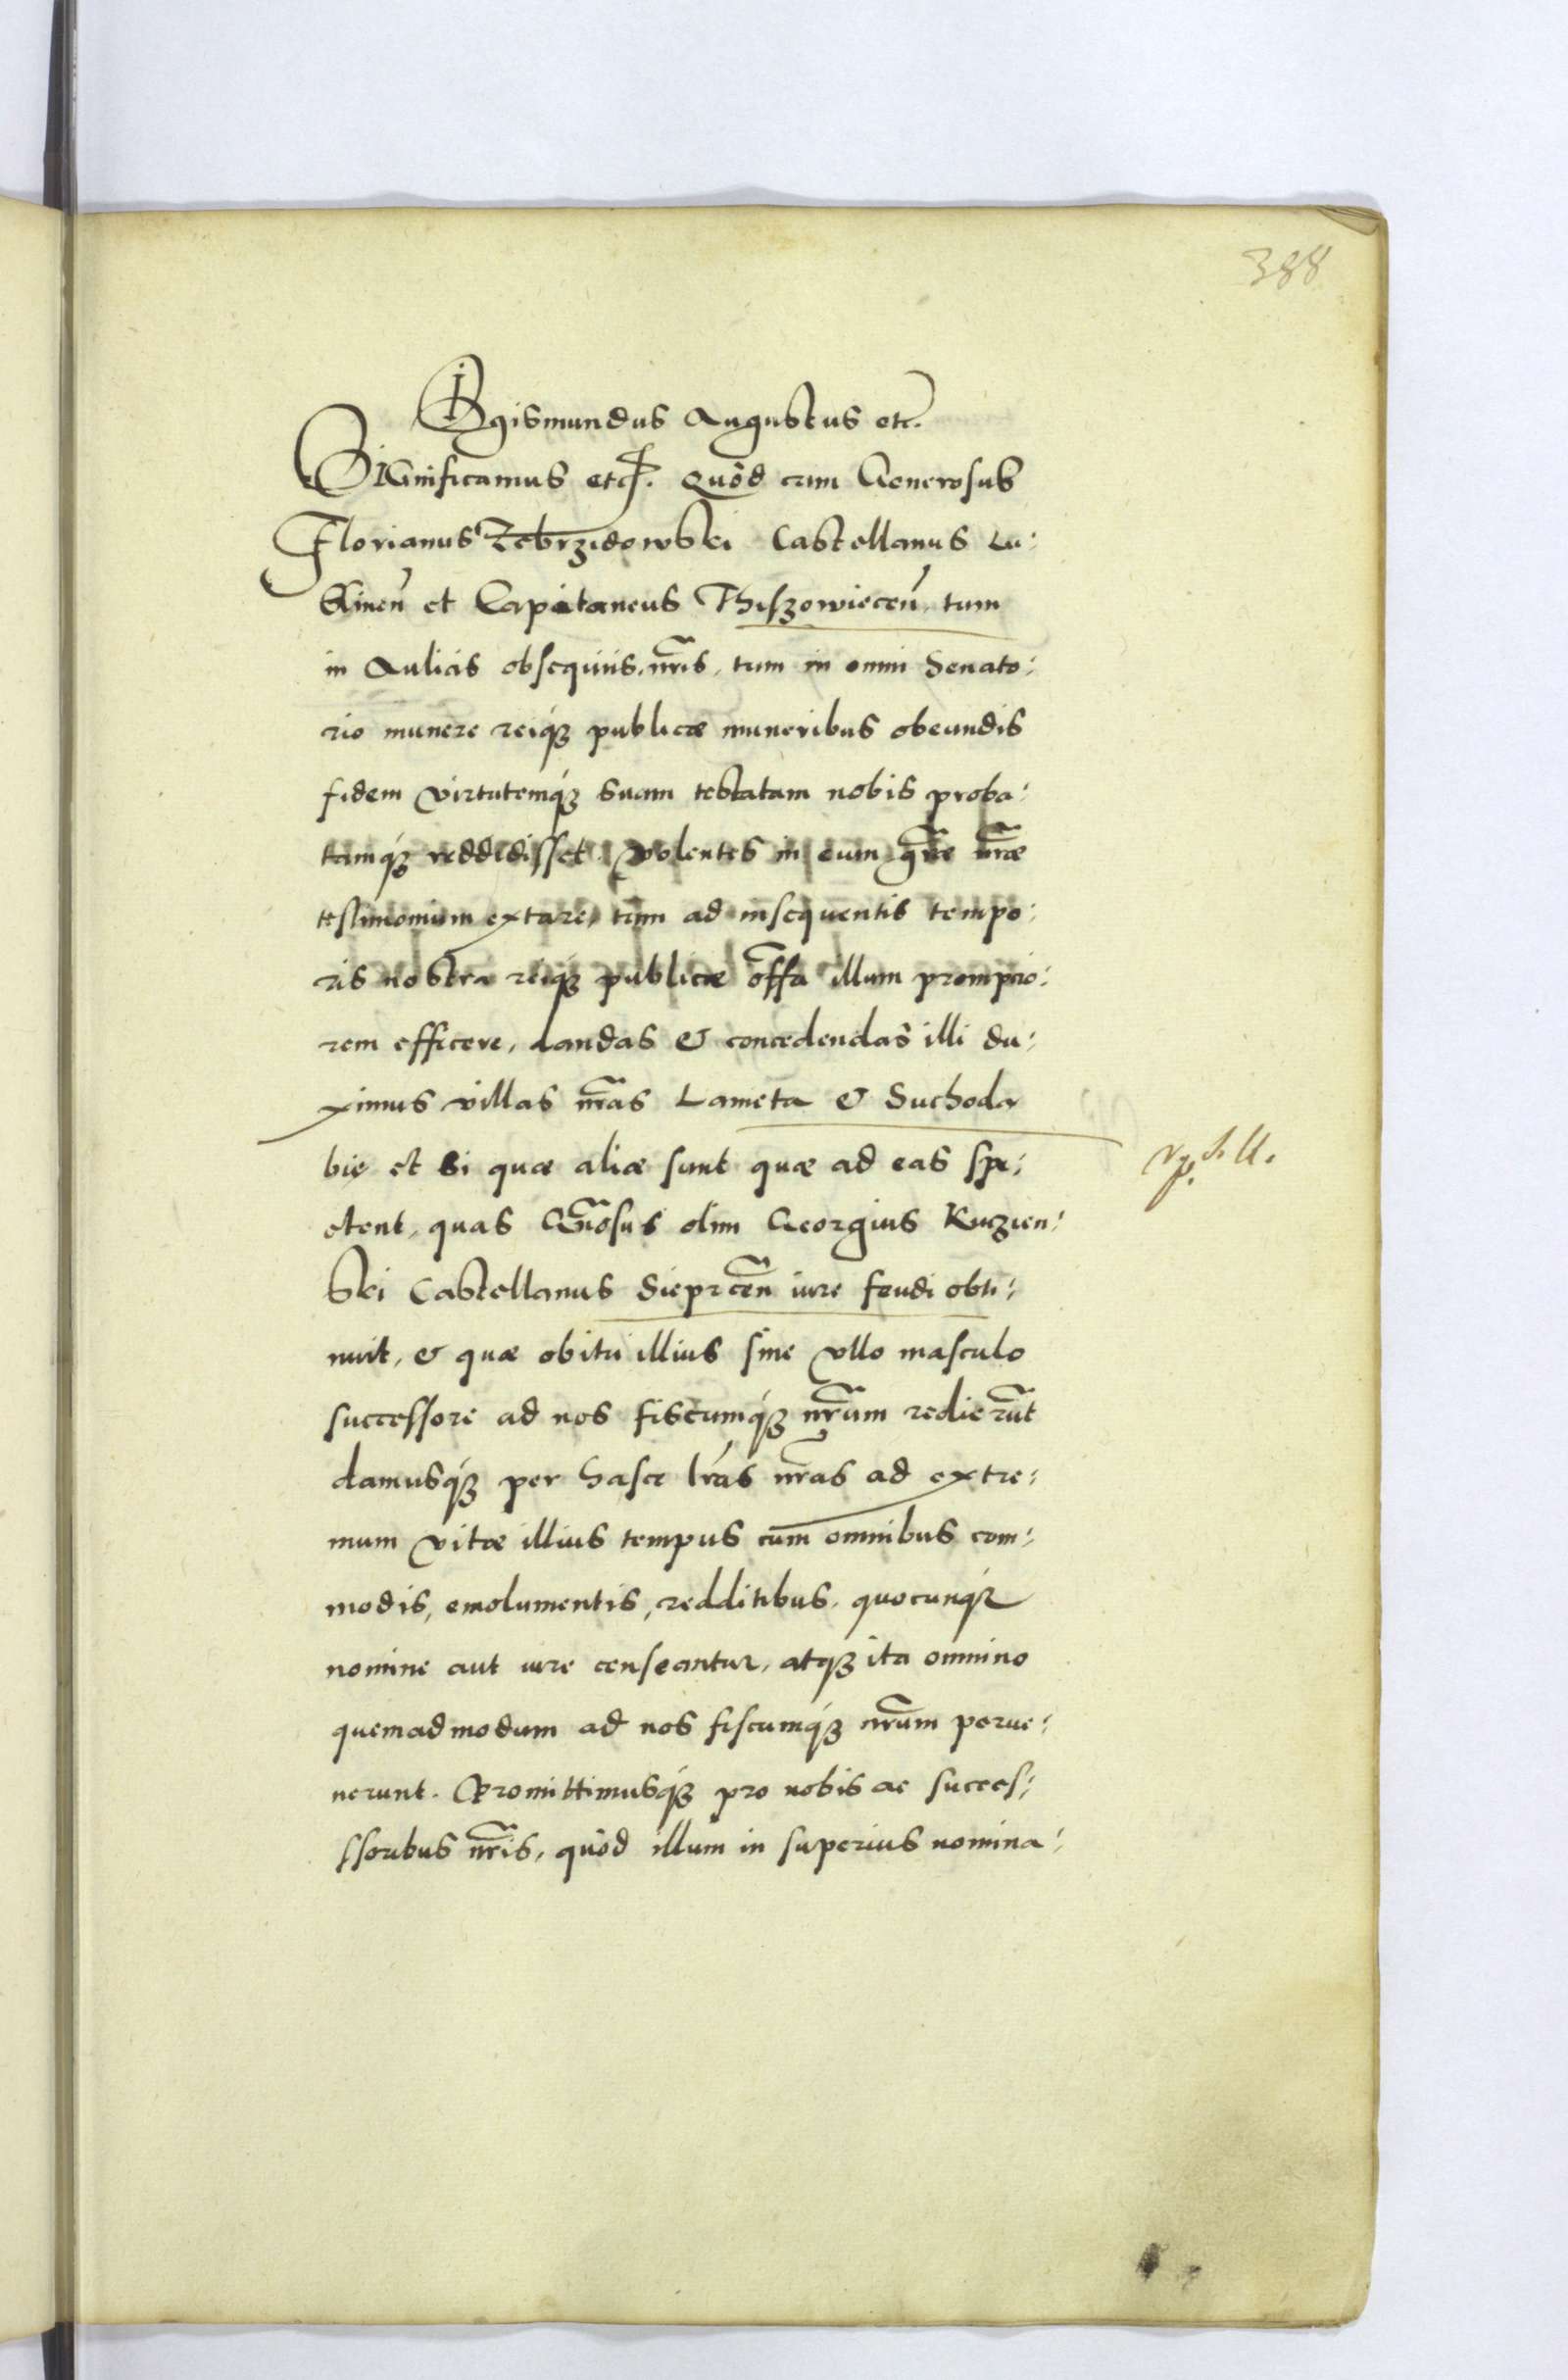 388
Sigismundus Augustus etc.
Significamus etc. Quòd cum Generosus
Florianus Zebrzidowski Castellanus Lu:
blinen̄ et Capitaneus Thiszowiecen̄ tum
in Aulicis obsequiis nr̃is, tum in omni Senato:
rio munere reiq́ꝫ publicæ muneribus obeundis
fidem virtutemq́ꝫ suam testatam nobis proba:
tamq́ꝫ reddidisset. Volentes in eum gr̃ae nr̃ae
testimonium extare, tum ad insequentis tempo:
ris nostra reiq́ꝫ publicæ off̃a illum prompcio:
rem efficere, dandas & concedendas illi du:
ximus villas nr̃as Lameta & Suchoda
bie et si quæ aliæ sunt quæ ad eas spe:
ctent, quas Gñosus olim Georgius Kuczien:
ski Castellanus Sieprcen̄ iure feudi obti:
nuit, & quæ obitu illius sine vllo masculo
successore ad nos fiscumq́ꝫ nr̃um redierūt
damusq́ꝫ per hasce lr̃as nr̃as ad extre:
mum vitæ illius tempus cum omnibus com:
modis, emolumentis, redditibus, quocunq́ꝫ
nomine aut iure censeantur, atq́ꝫ ita omnino
quemadmodum ad nos fiscumq́ꝫ nr̃um perue:
nerunt. Promittimusq́ꝫ pro nobis ac succes:
ssoribus nr̃is, quòd illum in superius nomina: